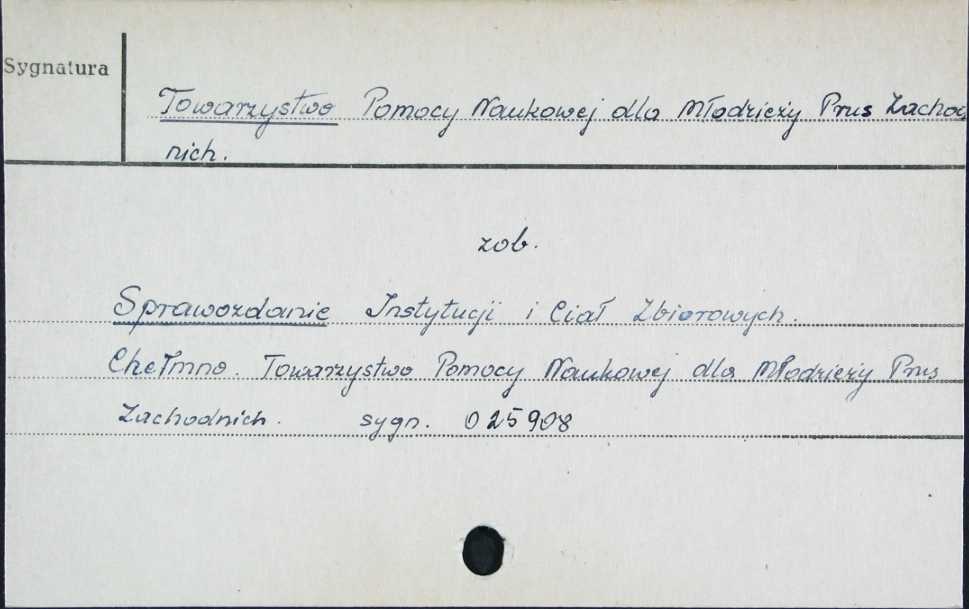 Sygnatura
Towarzystwo Pomocy Naukowej dla Młodzieży Prus Zachod
nich.
zob.
Sprawozdanie Instytucji i Ciał Zbiorowych.
Chełmno. Towarzystwo Pomocy Naukowej dla Młodzieży Prus
Zachodnich. sygn. 025908